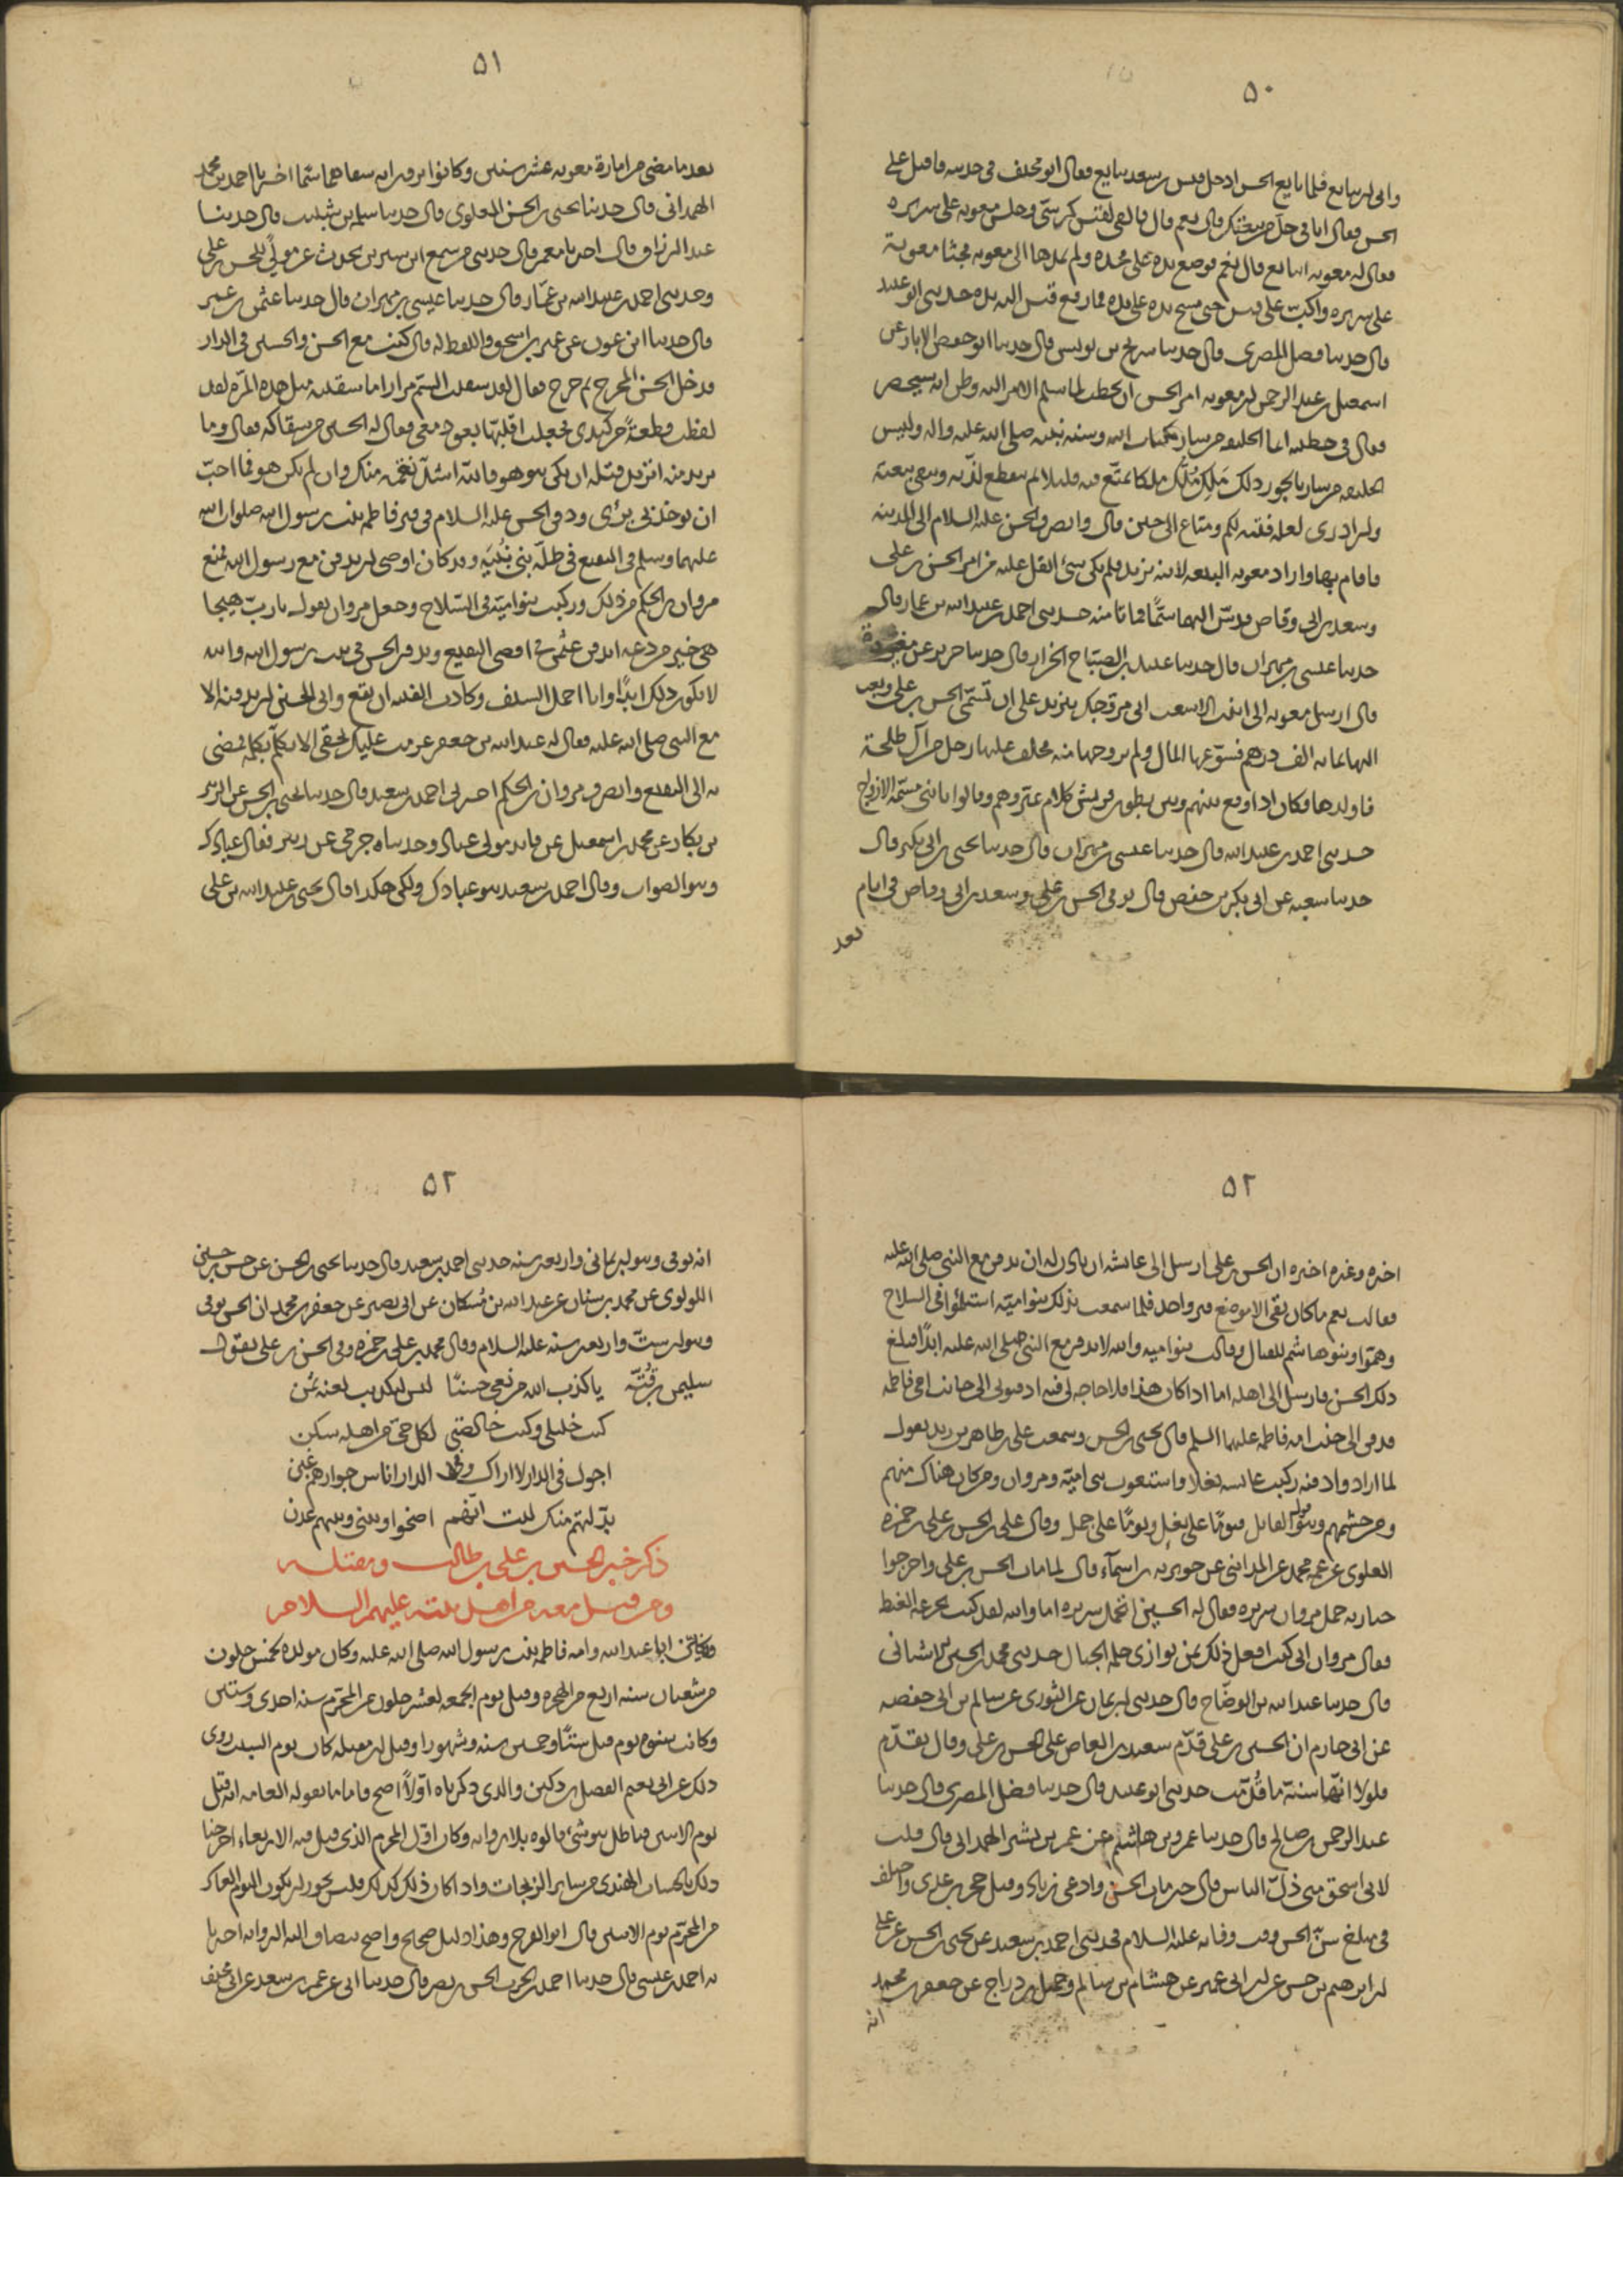 ٥٠
وابى ان يبايع فلما بايع الحسن ادخل قيس بن سعد ليبايع فقال ابو مخنف فى حديثه فاقبل على
الحسن فقال انا فى حل من بيعتك قال نعم قال فالقى لقيس كرسى وجلس معويه على سريره
فقال له معويه اتبايع قال نعم فوضع يده على فخذه ولم يمدها الى معويه فجثا معوية
على سريره واكب على قيس حتى مسح يده على يده فما رفع قيس اليه يده حدثنى ابو عبيد
قال حدثنا فضل المصرى قال حدثنا سريج بن يونس قال حدثنا ابو حفص الابار عن
اسمعيل بن عبد الرحمن ان معويه امر الحسن ان يخطب لما سلم الامر اليه وظن انه سيحصر
فقال فى خطبته انما الخليفه من سار بكتاب الله وسنه نبيه صلى الله عليه واله وليس
الخليفه من سار بالجور ذلك مَلِك مَلَك ملكا يمتع فيه قليلا ثم ينقطع لذته وتبقى تبعته
وان ادرى لعله فتنه لكم ومتاع الى حين قال وانصرف الحسن عليه السلام الى المدينه
فاقام بها واراد معويه البيعه لابنه يزيد فلم يكن شئ اثقل عليه من امر الحسن بن على
وسعد بن ابى وقاص فدس اليهما سمًّا فماتا منه حدثنى احمد بن عبيد الله بن عمار قال
حدثنا عيسى بن مهران قال حدثنا عبيد بن الصباح الخراز قال حدثنا جرير عن مغيرة
قال ارسل معويه الى ابنة الاشعث انى مزوجك بيزيد على ان تسمى الحسن بن على وبعث
اليها بمايه الف درهم فسوغها المال ولم يزوجها منه فخلف عليها رجل من آل طلحة
فاولدها فكان اذا وقع بينهم وبين بطون قريش كلام عيروهم وقالوا يا بنى مسمة الازواج
حدثنى احمد بن عبيد الله قال حدثنا عيسى بن مهران قال حدثنا يحيى بن ابى بكير قال
حدثنا شعبه عن ابى بكر بن حفص قال توفى الحسن بن على وسعد بن ابى وقاص فى ايام
بعد
٥١
بعد ما مضى من امارة معويه عشر سنين وكانوا يرون انه سقاهما سمّا اخبرنا احمد بن محمد
الهمدانى قال حدثنا يحيى بن الحسن العلوى قال حدثنا سلمه بن شبيب قال حدثنا
عبد الرزاق قال اخبرنا معمر قال حدثنى من سمع ابن سيرين يحدث عن مولًى للحسن بن على
وحدثنى احمد بن عبيد الله بن عمّار قال حدثنا عيسى بن مهران قال حدثنا عثمن بن عمر
قال حدثنا ابن عون عن عمير بن اسحق واللفظ له قال كنت مع الحسن والحسين فى الدار
فدخل الحسن المخرج ثم خرج فقال لقد سقيت السّم مرارا ما سقيته مثل هذه المره لقد
لفظت قطعةً من كبدى فجعلت اقلبها بعود معى فقال له الحسين من سقاكه فقال وما
تريد منه اتريد قتله ان يكن هو هو فالله اشدّ نقمه منك وان لم يكن هو فما احبّ
ان يوخذ بى برئ ودفن الحسن عليه السلام فى قبر فاطمه بنت رسول الله صلوات الله
عليهما وسلم فى البقيع فى ظلّه بنى نُبَيَه وقد كان اوصى ان يدفن مع رسول الله فمنع
مروان بن الحكم من ذلك وركبت بنو اميّة فى السّلاح وجعل مروان يقول يا ربّ هيجا
هى خير من دعه ايدفن عثمن فى اقصى البقيع ويدفن الحسن فى بيت رسول الله والله
لا يكون ذلك ابدًا وانا احمل السيف وكادت الفتنه ان تقع وابى الحسين ان يدفنه الا
مع النبى صلى الله عليه فقال له عبد الله بن جعفر عزمت عليك بحقى الا تكلّم بكلمه فمضى
به الى البقيع وانصرف مروان بن الحكم اخبرنى احمد بن سعيد قال حدثنا يحيى بن الحسن عن الزبير
بن بكار عن محمد بن اسمعيل عن فايد مولى عباد وحدثناه جرمى عن زبير فقال عبادك
وهو الصواب وقال احمد بن سعيد هو عبادك ولكن هكذا قال يحيى بن عبيد الله بن على
٥٢
اخبره وغيره اخبره ان الحسن بن على ارسل الى عايشه ان تاذن له ان يدفن مع النبى صلى الله عليه
فقالت نعم ما كان بقى الا موضع قبر واحد فلما سمعت بذلك بنو اميّه استلئموا فى السلاح
وهموا وبنو هاشم للقتال وقالت بنو اميه والله لا يدفن مع النبى صلى الله عليه ابدًا فبلغ
ذلك الحسن فارسل الى اهله اما اذا كان هذا فلا حاجه لى فيه ادفنونى الى جانب امى فاطمه
فدفن الى جنب امه فاطمه عليهما السلم قال يحيى بن الحسن وسمعت على بن طاهر بن زيد يقول
لما ارادوا دفنه ركبت عايشه بغلا واستعونت بنى اميّه ومروان ومن كان هناك منهم
ومن حشمهم وهو قول القايل فيومًا على بغل ويومًا على جمل وقال على بن الحسن بن على بن حمزه
العلوى عن عمه محمد عن المداينى عن جويريه بن اسمآء قال لما مات الحسن بن على واخرجوا
جنازته حمل مروان سريره فقال له الحسين اتحمل سريره اما والله لقد كنت تجرعه الغيظ
فقال مروان انى كنت افعل ذلك بمن يوازى حلمه الجبال حدثنى محمد بن الحسين الاشنانى
قال حدثنا عبد الله بن الوضّاح قال حدثنى ابن يمان عن الثورى عن سالم بن ابى حفصه
عن ابى حازم ان الحسين بن على قدّم سعيد بن العاص على الحسن بن على وقال تقدّم
فلولا انّها سنّة ما قُدّمت حدثنى ابو عبيد قال حدثنا فضل المصرى قال حدثنا
عبد الرحمن بن صالح قال حدثنا عمرو بن هاشم عن عمر بن بشير الهمدانى قال قلت
لابى اسحق متى ذلّ الناس قال حين مات الحسن وادعى زياد وقتل حجر بن عدى واختلف
فى مبلغ سنّ الحسن وقت وفاته عليه السلام فحدثنى احمد بن سعيد عن يحيى بن الحسن عن على
بن ابرهيم بن حسن عن ابن ابى عمير عن هشام بن سالم وجميل بن دراج عن جعفر بن محمد
انه
٥٢
انه توفى وهو ابن ثمانى واربعين سنه حدثنى احمد بن سعيد قال حدثنا يحيى بن الحسن عن حسن بن حسين
اللولوى عن محمد بن سنان عن عبد الله بن مُسكان عن ابى بصير عن جعفر بن محمد ان الحسن توفى
وهو ابن ستّ واربعين سنه عليه السلام وقال محمد بن على بن حمزه وفى الحسن بن على يقول
سليمن بن قُتّه يا كذب الله من نعى حسنًا ليس لتكذيب نعيه ثمن
كنت خليلى وكنت خالصتى لكل حى من اهله سكن
اجول فى الدار لا اراك وفى الدار اناس جوارهم غبن
بدّلتهم منك ليت انّهم اضحوا وبينى وبينهم عدن
ذكر خبر الحسين بن على بن ابى طالب ومقتله
ومن قتل معه من اهل بيته عليهم السلام
ويكنى ابا عبد الله وامه فاطمه بنت رسول الله صلى الله عليه وكان مولده لخمس خلون
من شعبان سنه اربع من الهجره وقتل يوم الجمعه لعشر خلون من المحرّم سنه احدى وستين
وكانت سنوه يوم قتل ستًّا وخمسين سنه وشهورا وقيل ان مقتله كان يوم السبت روى
ذلك عن ابى نعيم الفضل بن دكين والذى ذكرناه اوّلًا اصح فاما ما تقوله العامه انه قتل
يوم الاثنين فباطل هو شئ قالوه بلا روايه وكان اوّل المحرم الذى قتل فيه الاربعاء اخرجنا
ذلك بالحساب الهندى من ساير الزيجات واذا كان ذلك كذلك فليس يجوز ان يكون اليوم العاشر
من المحرّم يوم الاثنين قال ابو الفرج وهذا دليل صحيح واضح تنضاف اليه الروايه اخبرنا
به احمد بن عيسى قال حدثنا احمد بن الحرث الحسين بن نصر قال حدثنا ابى عن عمر بن سعد عن ابى مخنف